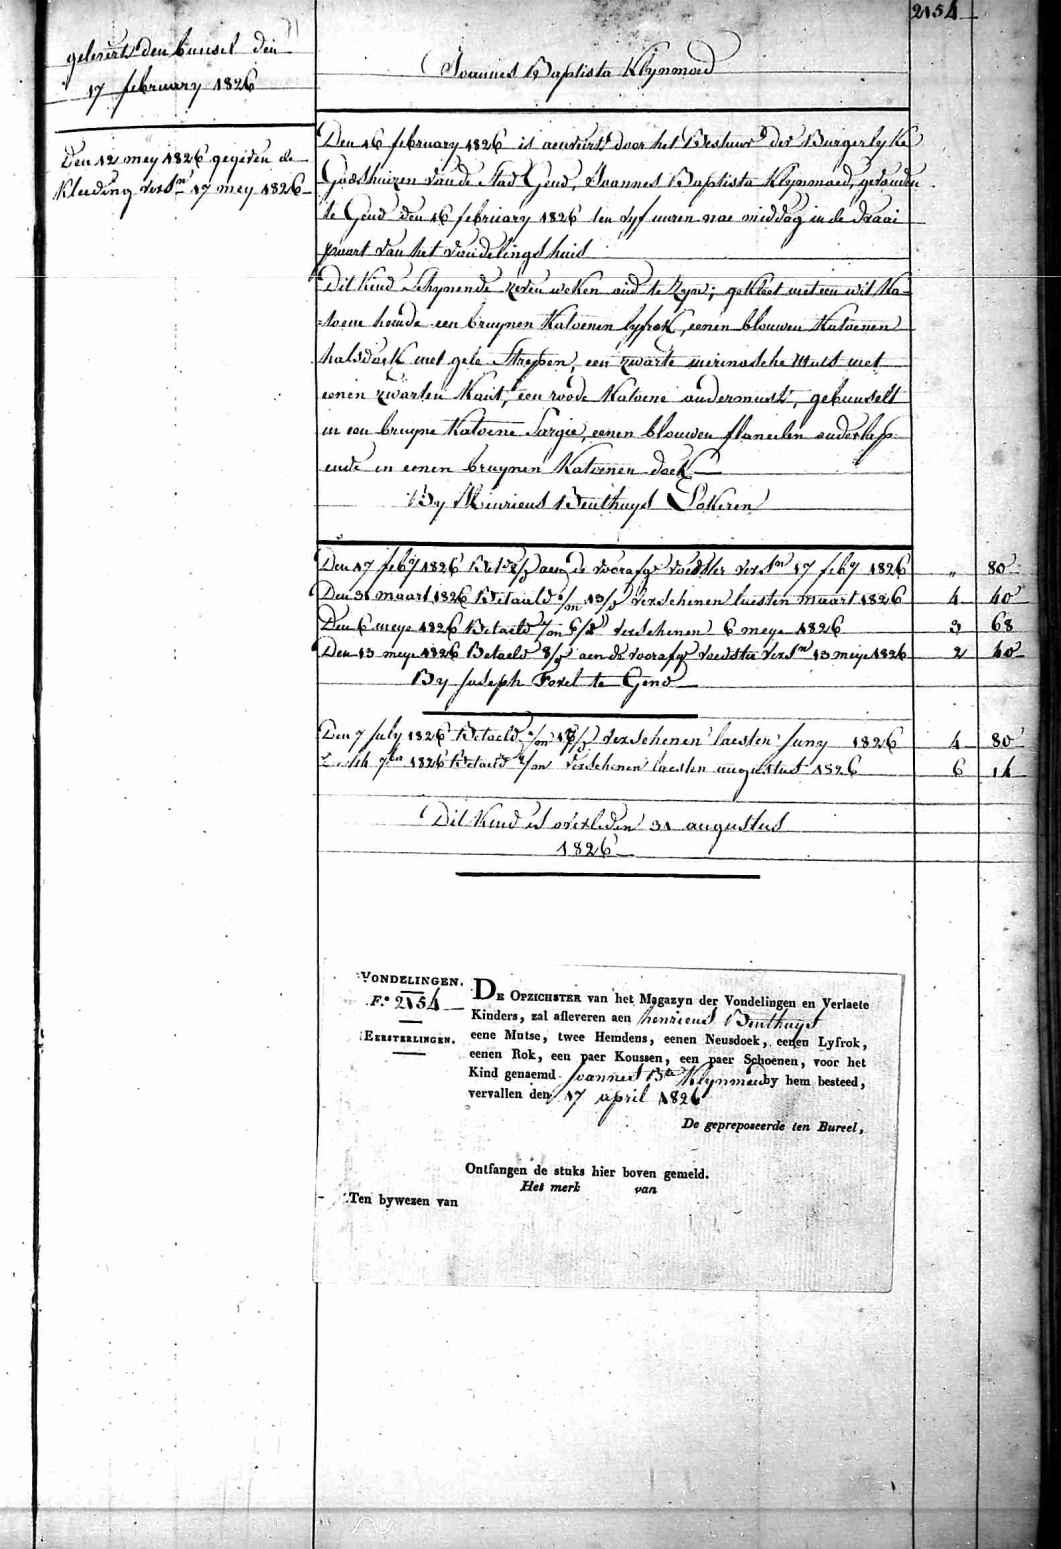 2154
gelevert den bunsel den
17 february 1826
Joannes Baptista Klijnmoed
Den 12 mey 1826 gegeven de
Kleeding versn 17 mey 1826
Den 16 february 1826 is door het Bestuur der Burgerlyke
Godshuizen van de Stad Gend, Joannes Baptista Klijnmoed, gevonden
te Gend den 16 february 1826 ten vyf uuren nae middag in de draai
van het vondelings huis
Dit kind schynende zeven weken oud te zyn; gekleet met een wit Ka-
toene hemde een bruynen Katoenen lyfrok, eenen blouwen Katoenen
halsdoek met gele Strepen, een zwarte merinosche Muts met
eenen zwarten Kant, een roode Katoene ondermuts, gebunselt
in een bruyne Katoene Sargie, eenen blouwen flanelen onderlap
ende in eenen bruynen Katoenen doek
By Beuthuys Lokeren
Den 17 feby 1826 aen de voorafge voedster versn 17 feby 1826 " 80
Den 31 maart 1826 Betaald verschenen laesten maart 1826 4 40
Den 6 meye 1826 Betaeld verschenen 6 meye 1826 3 68
Den 13 meye 1826 Betaeld aen de voorafge voedster versn 13 meye 1826 2 40
By Joseph Forel te Gend
Den 7 July 1826 Betaeld verschenen laesten Juny 1826 4 80
1826 Betaeld verschenen laesten augustus 1826 6 14
Dit Kind is overleden 31 augustus
1826
VONDELINGEN.
F.º 2154
EERSTERLINGEN.
DE OPZICHSTER van het Magazyn der Vondelingen en Verlaete
Kinders, zal afleveren aen henricus Beuthuys
eene Mutse, twee Hemdens, eenen Neusdoek, eenen Lyfrok,
eenen Rok, een paer Koussen, een paer Schoenen, voor het
Kind genaemd Joannes Bta Klynmoed by hem besteed,
vervallen den 17 april 1826
De gepreposeerde ten Bureel,
Ontfangen de stuks hier boven gemeld.
Het merk van
Ten bywezen van